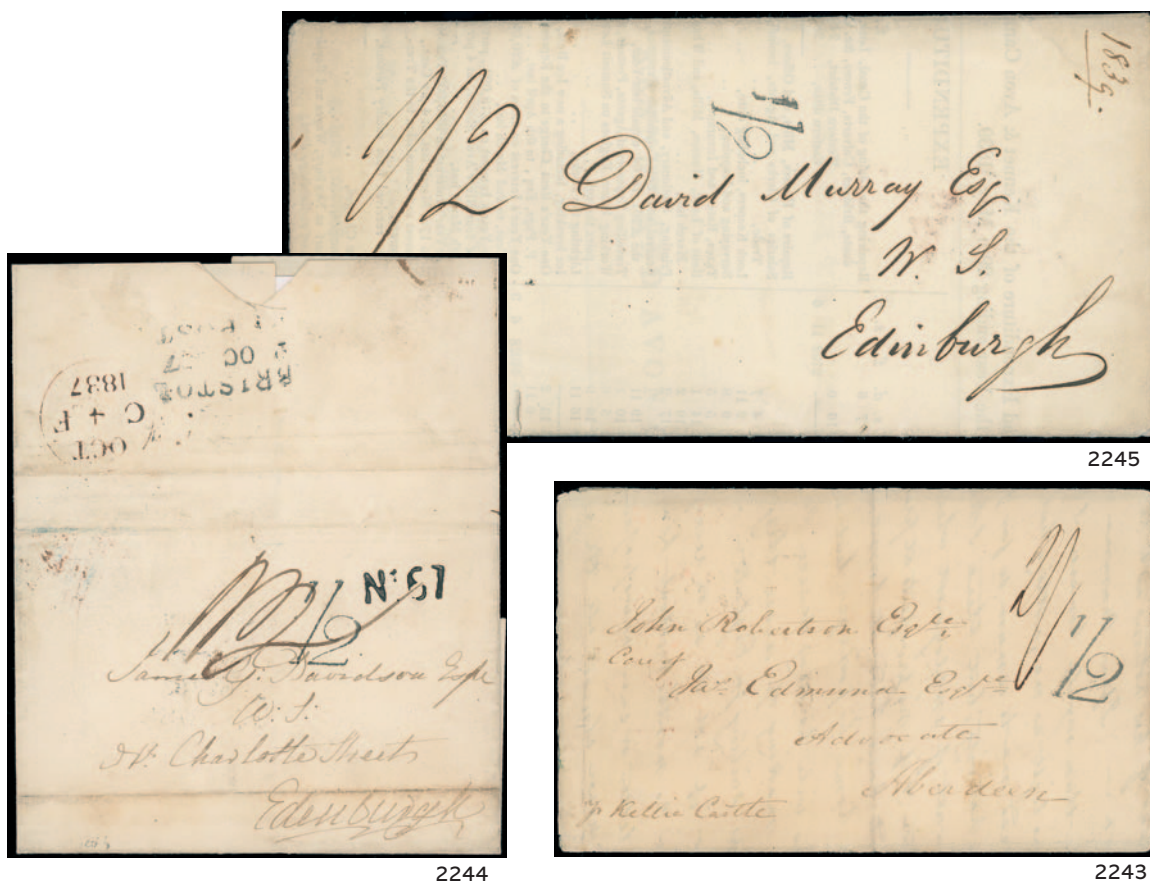 1839.
1/2
1/2
David Murray Esq
W. S.
Edinburgh
2245
BRISTOL
OC
POST
OCT
C + F
1837
1/2
No 61
Davidson Esqre
W. S.
Charlotte Street
Edinburgh
2244
1/2
John Robertson Esqre
Care of
Jas. Edmund Esqre
Advocate
Aberdeen
p Kellie Castle
2243